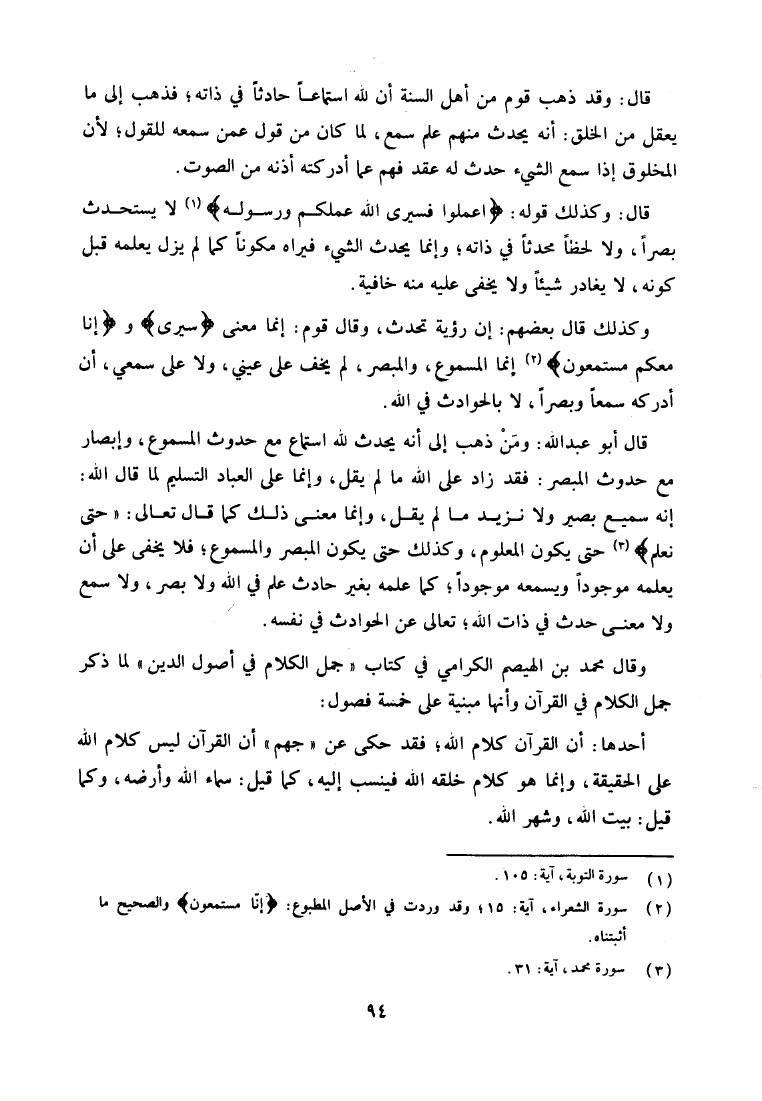 قال: وقد ذهب قوم من أهل السنة أن لله استماعاً حادثاً في ذاته؛ فذهب إلى ما
يعقل من الخلق: أنه يحدث منهم علم سمع، لما كان من قول عمن سمعه للقول؛ لأن
المخلوق إذا سمع الشيء حدث له عقد فهم عما أدركته أذنه من الصوت.
قال: وكذلك قوله: ﴿اعملوا فسيرى الله عملكم ورسوله﴾(١) لا يستحدث
بصراً، ولا لحظاً محدثاً في ذاته؛ وإنما يحدث الشيء فيراه مكوناً كما لم يزل يعلمه قبل
كونه، لا يغادر شيئاً ولا يخفى عليه منه خافية.
وكذلك قال بعضهم: إن رؤية تحدث، وقال قوم: إنما معنى ﴿سيرى﴾ و ﴿إنا
معكم مستمعون﴾(٢) إنما المسموع، والمبصر، لم يخف على عيني، ولا على سمعي، أن
أدركه سمعاً وبصراً، لا بالحوادث في الله.
قال أبو عبدالله: ومَنْ ذهب إلى أنه يحدث لله استماع مع حدوث المسموع، وإبصار
مع حدوث المبصر: فقد زاد على الله ما لم يقل، وإنما على العباد التسليم لما قال الله:
إنه سميع بصير ولا نزيد ما لم يقل، وإنما معنى ذلك كما قال تعالى: «حتى
نعلم﴾(٣) حتى يكون المعلوم، وكذلك حتى يكون المبصر والمسموع؛ فلا يخفى على أن
يعلمه موجوداً ويسمعه موجوداً؛ كما علمه بغير حادث علم في الله ولا بصر، ولا سمع
ولا معنى حدث في ذات الله؛ تعالى عن الحوادث في نفسه.
وقال محمد بن الهيصم الكرامي في كتاب «جمل الكلام في أصول الدين» لما ذكر
جمل الكلام في القرآن وأنها مبنية على خمسة فصول:
أحدها: أن القرآن كلام الله؛ فقد حكى عن «جهم» أن القرآن ليس كلام الله
على الحقيقة، وإنما هو كلام خلقه الله فينسب إليه، كما قيل: سماء الله وأرضه، وكما
قيل: بيت الله، وشهر الله.
(١) سورة التوبة، آية: ١٠٥.
(٢) سورة الشعراء، آية: ١٥؛ وقد وردت في الأصل المطبوع: ﴿إنّا مستمعون﴾ والصحيح ما
أثبتناه.
(٣) سورة محمد، آية: ٣١.
٩٤